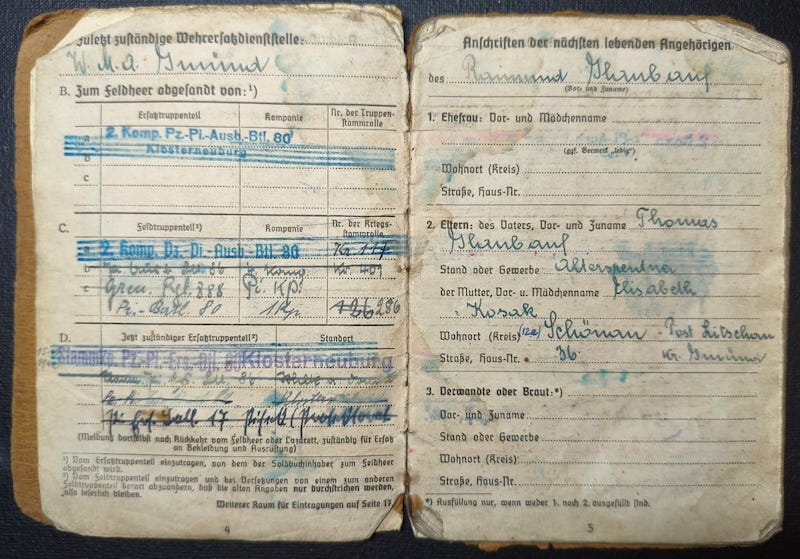 Zuletzt zuständige Wehrersatzdienststelle:
W. M. A. Gmünd
B. Zum Feldheer abgesandt von:¹)
Ersatztruppenteil Kompanie Nr. der Truppen-
stammrolle
a 2. Komp. Pz.-Pi.-Ausb.-Btl. 80
b Klosterneuburg
c
C. Feldtruppenteil²) Kompanie Nr. der Kriegs-
stammrolle
a 2. Komp. Pz.-Pi.-Ausb.-Btl. 80
b 86 Komp. 401
c Gren. Rgt. 888 Pi. Kp.
Pi.-Batl. 80 1 Kp. 286
D. Jetzt zuständiger Ersatztruppenteil²) Standort
Stammkp. Pz.-Pi. Ers. Btl. Klosterneuburg
86
17
(Meldung dortselbst nach Rückkehr vom Feldheer oder Lazarett, zuständig für Ersatz
an Bekleidung und Ausrüstung)
¹) Vom Ersatztruppenteil einzutragen, von dem der Soldbuchinhaber zum Feldheer
abgesandt wird.
²) Vom Feldtruppenteil einzutragen und bei Versetzungen von einem zum anderen
Feldtruppenteil derart abzuändern, daß die alten Angaben nur durchstrichen werden,
also leserlich bleiben.
Weiterer Raum für Eintragungen auf Seite 17
4
Anschriften der nächsten lebenden Angehörigen
des Raimund Glaubauf
(Vor- und Zuname)
1. Ehefrau: Vor- und Mädchenname
(ggf. Vermerk „ledig“)
Wohnort (Kreis)
Straße, Haus-Nr.
2. Eltern: des Vaters, Vor- und Zuname Thomas
Glaubauf
Stand oder Gewerbe Altersrentner
der Mutter, Vor- u. Mädchenname Elisabeth
Kosak
Wohnort (Kreis) (12a) Schönau Post Litschau
Straße, Haus-Nr. 36 Kr. Gmünd
3. Verwandte oder Braut:*)
Vor- und Zuname
Stand oder Gewerbe
Wohnort (Kreis)
Straße, Haus-Nr.
*) Ausfüllung nur, wenn weder 1. noch 2. ausgefüllt sind.
5